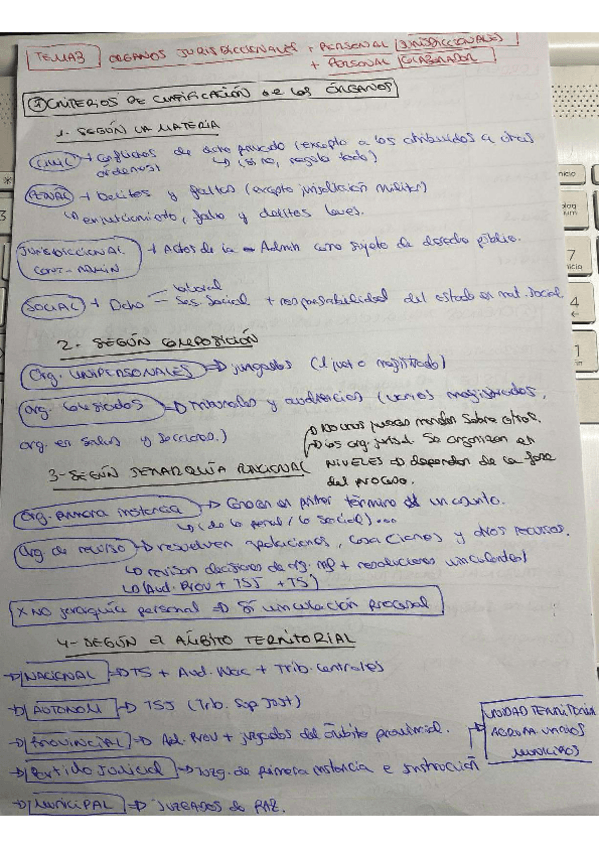 TEMA3 ÓRGANOS JURISDICCIONALES + PERSONAL JURISDICCIONALES
+ PERSONAL COLABORADOR
① CRITERIOS DE CLASIFICACIÓN de los ÓRGANOS
1. SEGÚN LA MATERIA
CIVIL + Conflictos de dcho privado (excepto a los atribuidos a otras
órdenes) ↳ (si no, regula todo)
PENAL → Delitos y faltas (excepto jurisdicción militar)
↳ enjuiciamiento, fallo y delitos leves.
JURISDICCIONAL CONT-ADMIN + Actos de la Admin como sujeto de derecho público.
SOCIAL + Dcho laboral
Seg. Social + responsabilidad del estado en mat. social
2. SEGÚN COMPOSICIÓN
Org. UNIPERSONALES → juzgados (1 juez o magistrado)
org. Colegiados → Tribunales y audiencias (varios magistrados,
org. en salas y secciones.)
→ NO unos jueces mandan sobre otros.
→ los org. jurisd. Se organizan en
NIVELES → dependen de la fase
del PROCESO.
3-SEGÚN JERARQUÍA FUNCIONAL
Org. primera instancia → Conocen en primer término d un asunto.
↳ (de lo penal / lo social)...
Org de recurso → resuelven apelaciones, casaciones y otros recursos.
↳ revisan decisiones de org. inf + resoluciones vinculantes)
↳ (Aud. Prov + TSJ + TS)
* NO jerarquía personal → Sí vinculación procesal
4- SEGÚN El ÁMBITO TERRITORIAL
→ NACIONAL → TS + Aud. Nac + Trib. Centrales
→ AUTONOM → TSJ (Trib. Sup Just)
→ PROVINCIAL → Ad. Prov + juzgados del ámbito provincial.
→ Partido Judicial → Juzg. de primera instancia e Instrucción
UNIDAD TERRITORIAL
AGRUPA VARIOS
MUNICIPIOS
→ MUNICIPAL → JUZGADOS de PAZ.